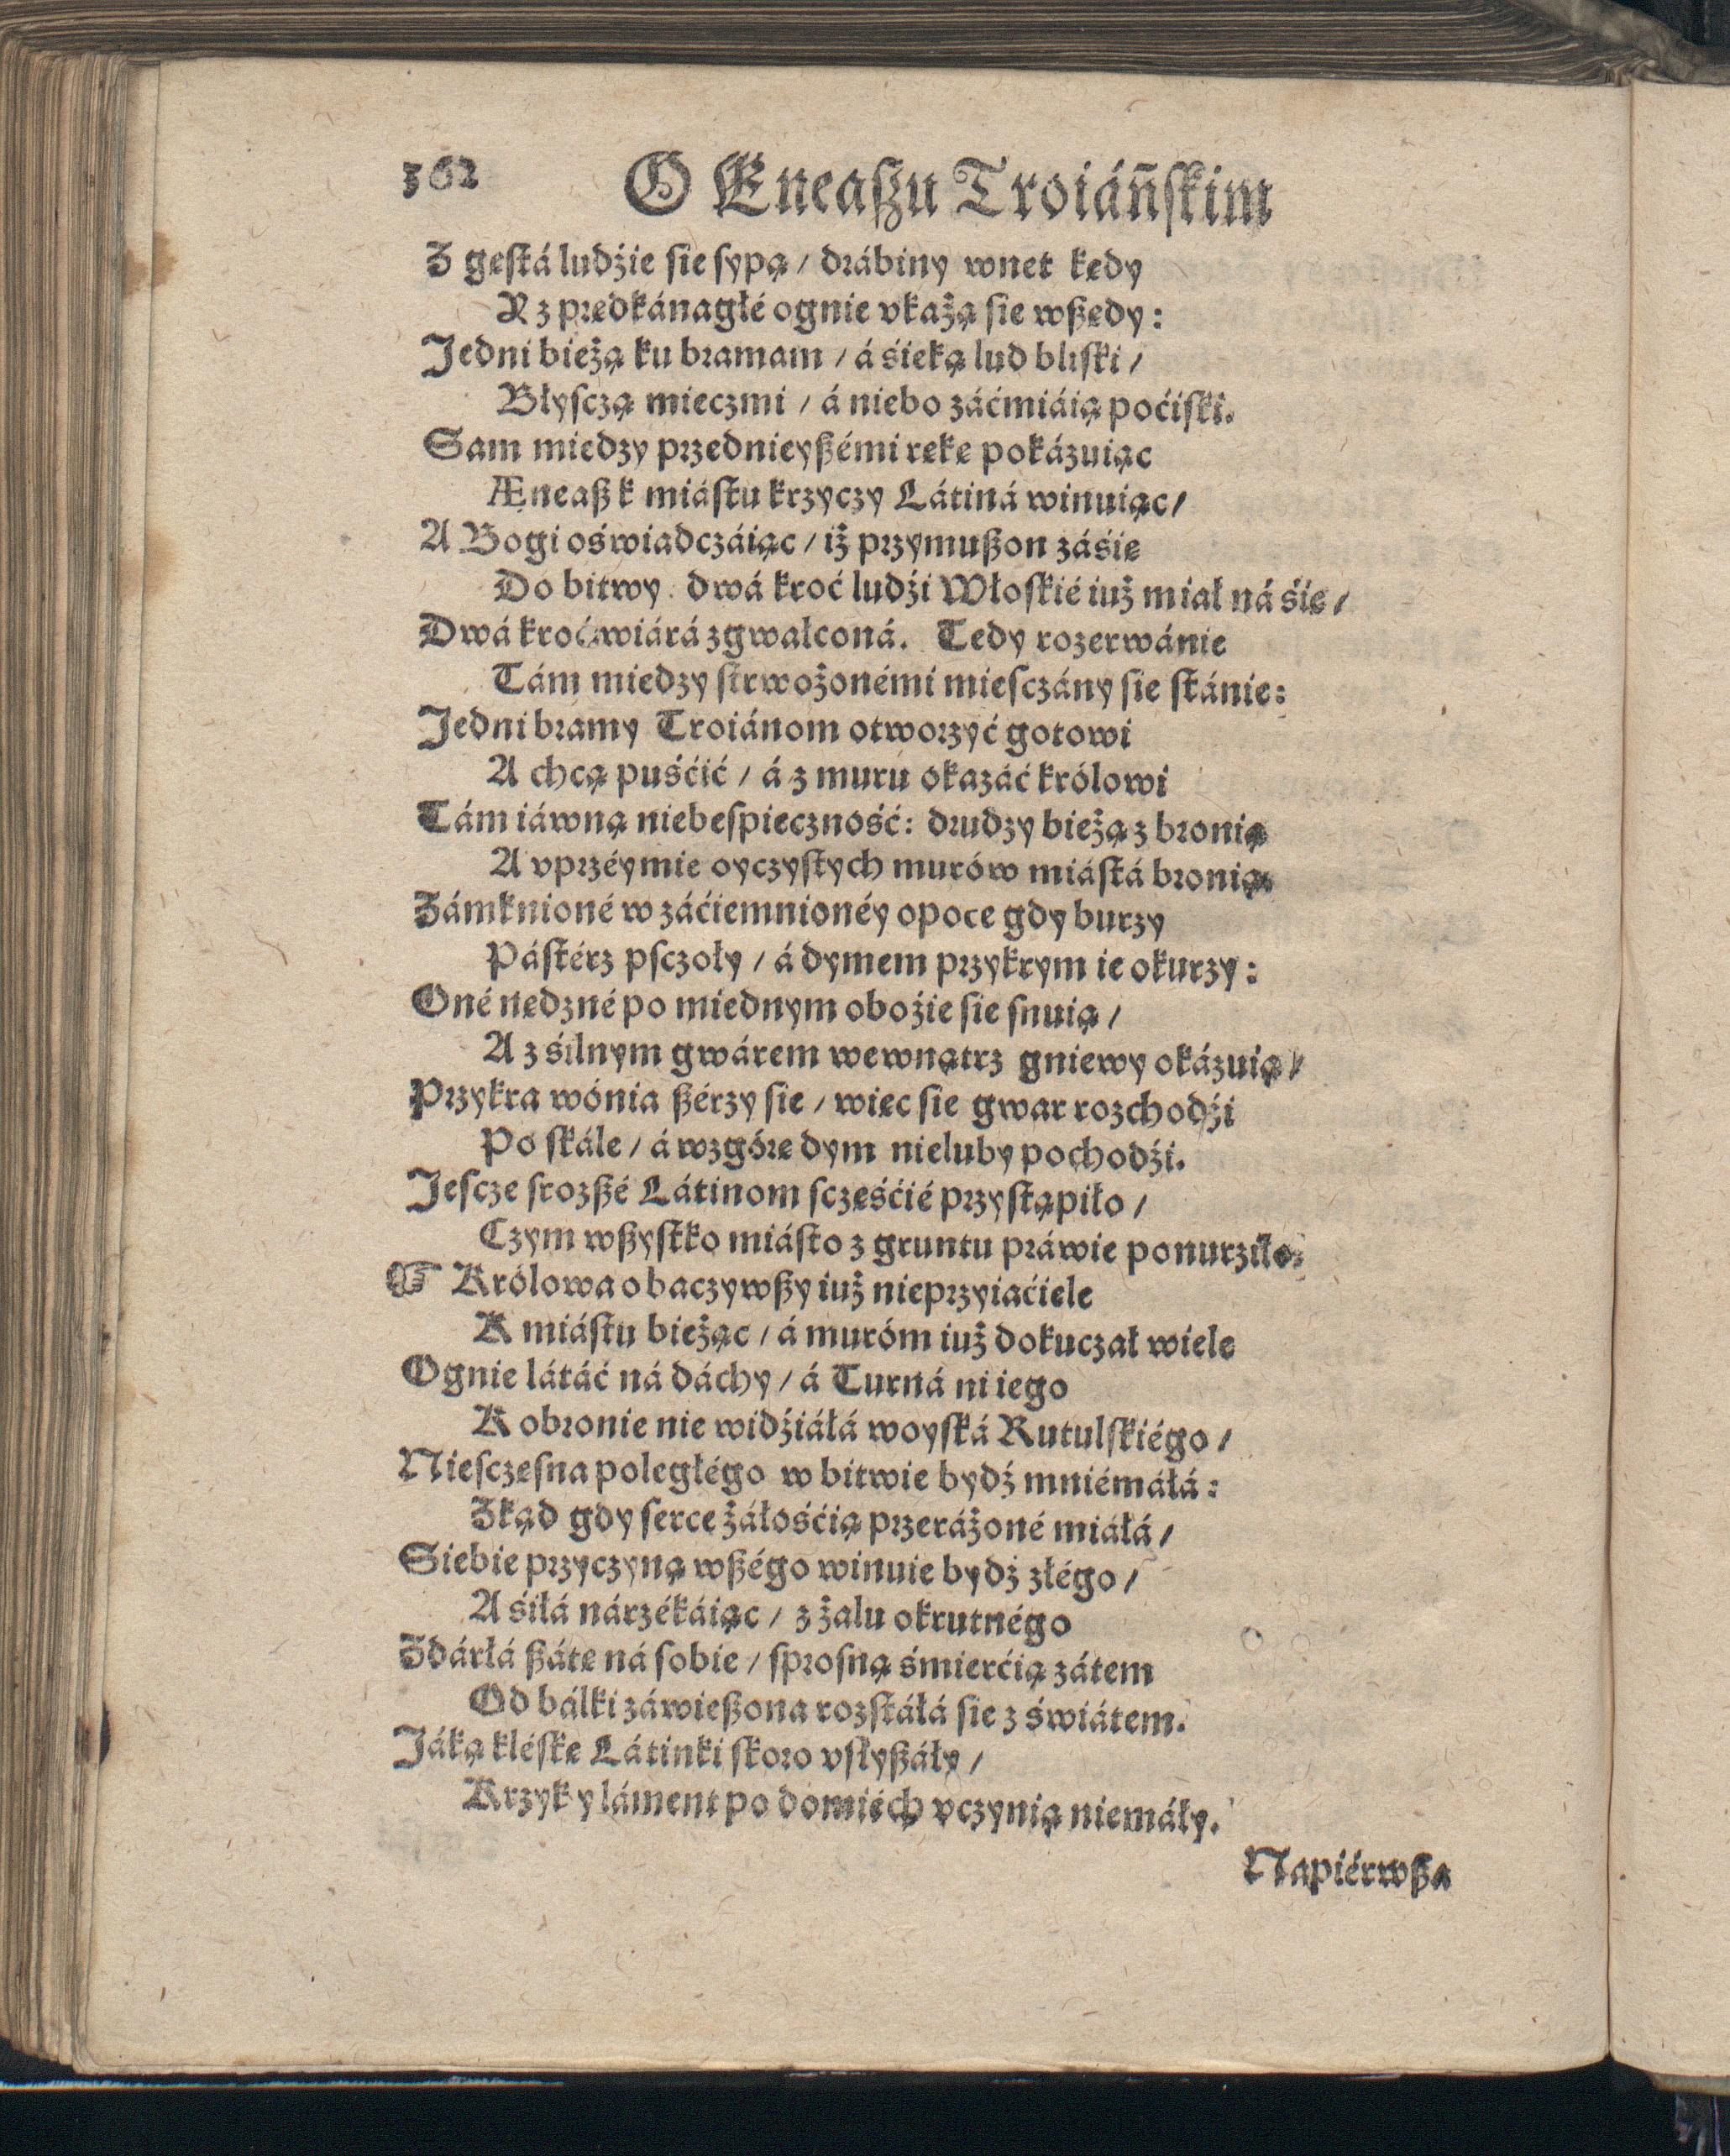 362 O Eneaſzu Troiáñſkim
Z gęſtá ludźie ſie ſypą / drábiny wnet kędy
Y z prędká nagłé ognie vkażą ſie wßędy:
Jedni bieżą ku bramam / á śieką lud bliſki /
Błyſczą mieczmi / á niebo záćmiáią poćiſki.
Sam miedzy przednieyßémi rękę pokázuiąc
Æneaß k miáſtu krzyczy Látiná winuiąc /
A Bogi oświadczáiąc / iż przymußon záśię
Do bitwy: dwá kroć ludźi Włoſkié iuż miał ná śię /
Dwá kroć wiárá zgwałconá. Tedy rozerwánie
Tám miedzy ſtrwożonémi mieſczány ſie ſtánie:
Jedni bramy Troiánom otworzyć gotowi
A chcą puśćić / á z muru okazáć królowi
Tám iáwną niebeſpieczność: drudzy bieżą z bronią
A vprzéymie oyczyſtych murów miáſtá bronią.
Zámknioné w záćiemnionéy opoce gdy burzy
Páſtérz pſczoły / á dymem przykrym ie okurzy:
Oné nędzné po miednym oboźie ſie ſnuią /
A z śilnym gwárem wewnątrz gniewy okázuią /
Przykra wónia ßérzy ſie / więc ſie gwar rozchodźi
Po ſkále / á wzgórę dym nieluby pochodźi.
Jeſcze ſrozßé Látinom ſczęśćié przyſtąpiło /
Czym wßyſtko miáſto z gruntu práwie ponurziło:
☞ Królowa obaczywßy iuż nieprzyiaćiele
K miáſtu bieżąc / á muróm iuż dokuczał wiele
Ognie látáć ná dáchy / á Turná ni iego
K obronie nie widźiáłá woyſká Rutulſkiégo /
Nieſczęſna poległégo w bitwie bydź mniémáłá:
Zkąd gdy ſerce żáłośćią przeráżoné miáłá /
Siebie przyczyną wßégo winuie bydź złégo /
A śiłá nárzékáiąc / z żalu okrutnégo
Zdárłá ßátę ná ſobie / ſproſną śmierćią zátem
Od bálki záwießona rozſtáłá ſie z świátem.
Jáką klęſkę Látinki ſkoro vſłyßáły /
Krzyk y láment po domiéch vczynią niemáły.
Napiérwßa